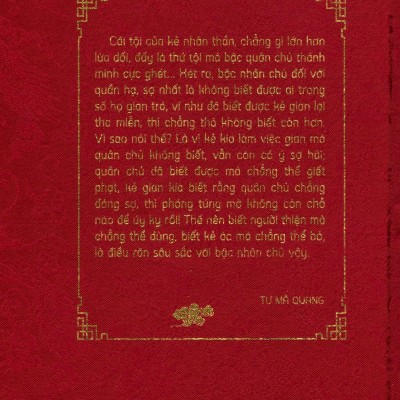 Cái tội của kẻ nhân thần, chẳng gì lớn hơn
lừa dối, đấy là thứ tội mà bậc quân chủ thánh
minh cực ghét... Xét ra, bậc nhân chủ đối với
quần hạ, sợ nhất là không biết được ai trong
số họ gian trá, ví như đã biết được kẻ gian lại
tha miễn, thì chẳng thà không biết còn hơn.
Vì sao nói thế? Là vì kẻ kia làm việc gian mà
quân chủ không biết, vẫn còn có ý sợ hãi;
quân chủ đã biết được mà chẳng thể giết
phạt, kẻ gian kia biết rằng quân chủ chẳng
đáng sợ, thì phóng túng mà không còn chỗ
nào để úy kỵ rồi! Thế nên biết người thiện mà
chẳng thể dùng, biết kẻ ác mà chẳng thể bỏ,
là điều răn sâu sắc với bậc nhân chủ vậy.
TƯ MÃ QUANG